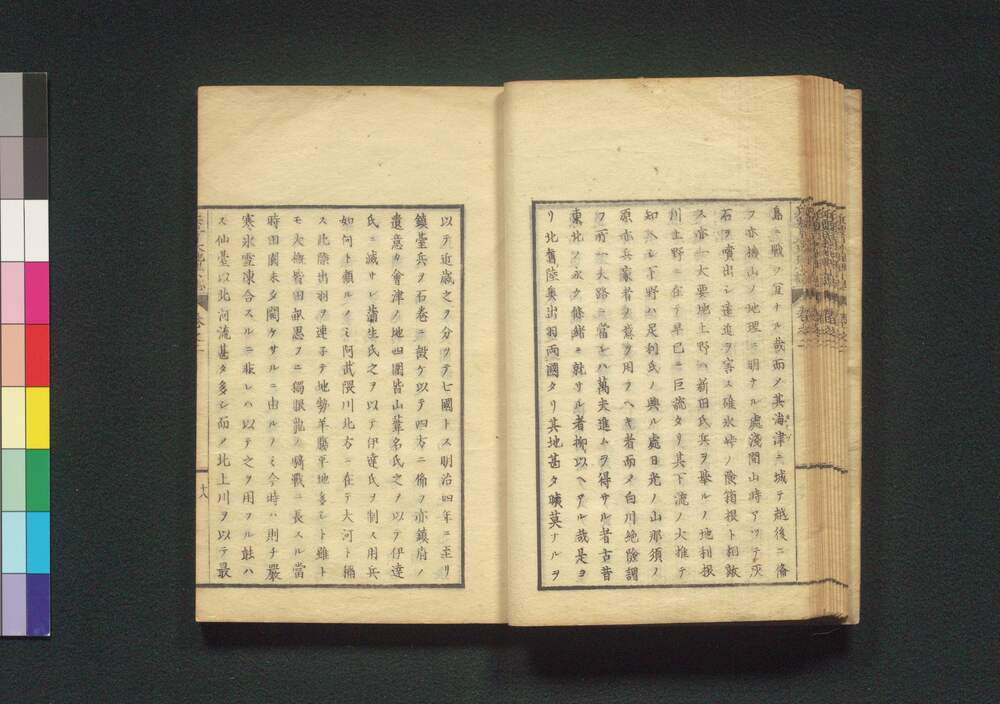 島ニ戰フ宜ナル哉而ノ其海津ニ城テ越後ニ備
フ亦機山ノ地理ニ明ケル處淺間山時アツテ灰
石ヲ噴出シ遠近ヲ害ス碓氷峠ノ險箱根ト相敵
ス亦一大要地上野ハ新田氏兵ヲ擧ルノ地利根
川上野ニ在テ早已ニ巨流タリ其下流ノ大推テ
知ヘシ下野ハ足利氏ノ興ル處日光ノ山那須ノ
原亦兵家者ノ意ヲ用フヘキ者而ノ白川絶險謂
フ所一大路ニ當レハ萬夫進ムヲ得サル者古昔
東北ノ永ク條緒ニ就サル者抑以ヘアル哉是ヨ
リ北舊陸奥出羽兩國タリ其地甚タ曠莫ナルヲ
以テ近歳之ヲ分ツテ七國トス明治四年ニ至リ
鎮臺兵ヲ石巻ニ設ケ以テ四方ニ備フ亦鎮府ノ
遺意カ會津ノ地四圍皆山葦名氏之ノ以テ伊達
氏ニ滅サレ蒲生氏之ヲ以テ伊達氏ヲ制ス用兵
如何ト顧ルノミ阿武隈川北方ニ在テ大河ト稱
ス此陸出羽ヲ連子テ地勢羊腸平地多シト雖ト
モ大條皆田畝思フニ獨眼龍ノ騎戰ニ長スル當
時田園未タ開ケサルニ由ルノミ今時ハ則チ嚴
寒氷雪凍合スルニ非レハ以テ之ヲ用フル能ハ
ス仙臺以北河流甚タ多シ而ノ北上川ヲ以テ最